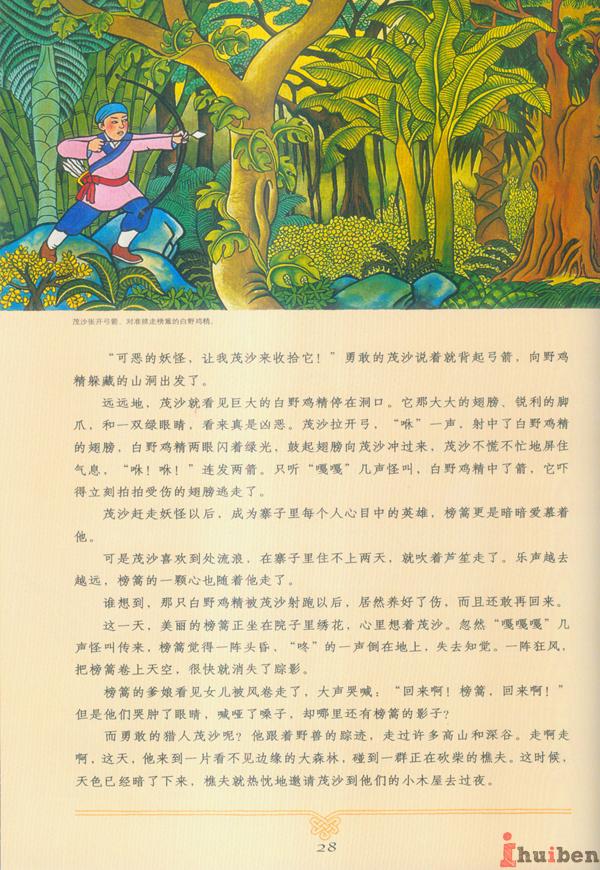 茂沙张开弓箭，对准掳走榜篙的白野鸡精。
“可恶的妖怪，让我茂沙来收拾它！”勇敢的茂沙说着就背起弓箭，向野鸡
精躲藏的山洞出发了。
远远地，茂沙就看见巨大的白野鸡精停在洞口。它那大大的翅膀、锐利的脚
爪，和一双绿眼睛，看来真是凶恶。茂沙拉开弓，“咻”一声，射中了白野鸡精
的翅膀，白野鸡精两眼闪着绿光，鼓起翅膀向茂沙冲过来，茂沙不慌不忙地屏住
气息，“咻！咻！”连发两箭。只听“嘎嘎”几声怪叫，白野鸡精中了箭，它吓
得立刻拍拍受伤的翅膀逃走了。
茂沙赶走妖怪以后，成为寨子里每个人心目中的英雄，榜篙更是暗暗爱慕着
他。
可是茂沙喜欢到处流浪，在寨子里住不上两天，就吹着芦笙走了。乐声越去
越远，榜篙的一颗心也随着他走了。
谁想到，那只白野鸡精被茂沙射跑以后，居然养好了伤，而且还敢再回来。
这一天，美丽的榜篙正坐在院子里绣花，心里想着茂沙。忽然“嘎嘎嘎”几
声怪叫传来，榜篙觉得一阵头昏，“咚”的一声倒在地上，失去知觉。一阵狂风，
把榜篙卷上天空，很快就消失了踪影。
榜篙的爹娘看见女儿被风卷走了，大声哭喊：“回来啊！榜篙，回来啊！”
但是他们哭肿了眼睛，喊哑了嗓子，却哪里还有榜篙的影子？
而勇敢的猎人茂沙呢？他跟着野兽的踪迹，走过许多高山和深谷。走啊走
啊，这天，他来到一片看不见边缘的大森林，碰到一群正在砍柴的樵夫。这时候，
天色已经暗了下来，樵夫就热忱地邀请茂沙到他们的小木屋去过夜。
28
ihuiben